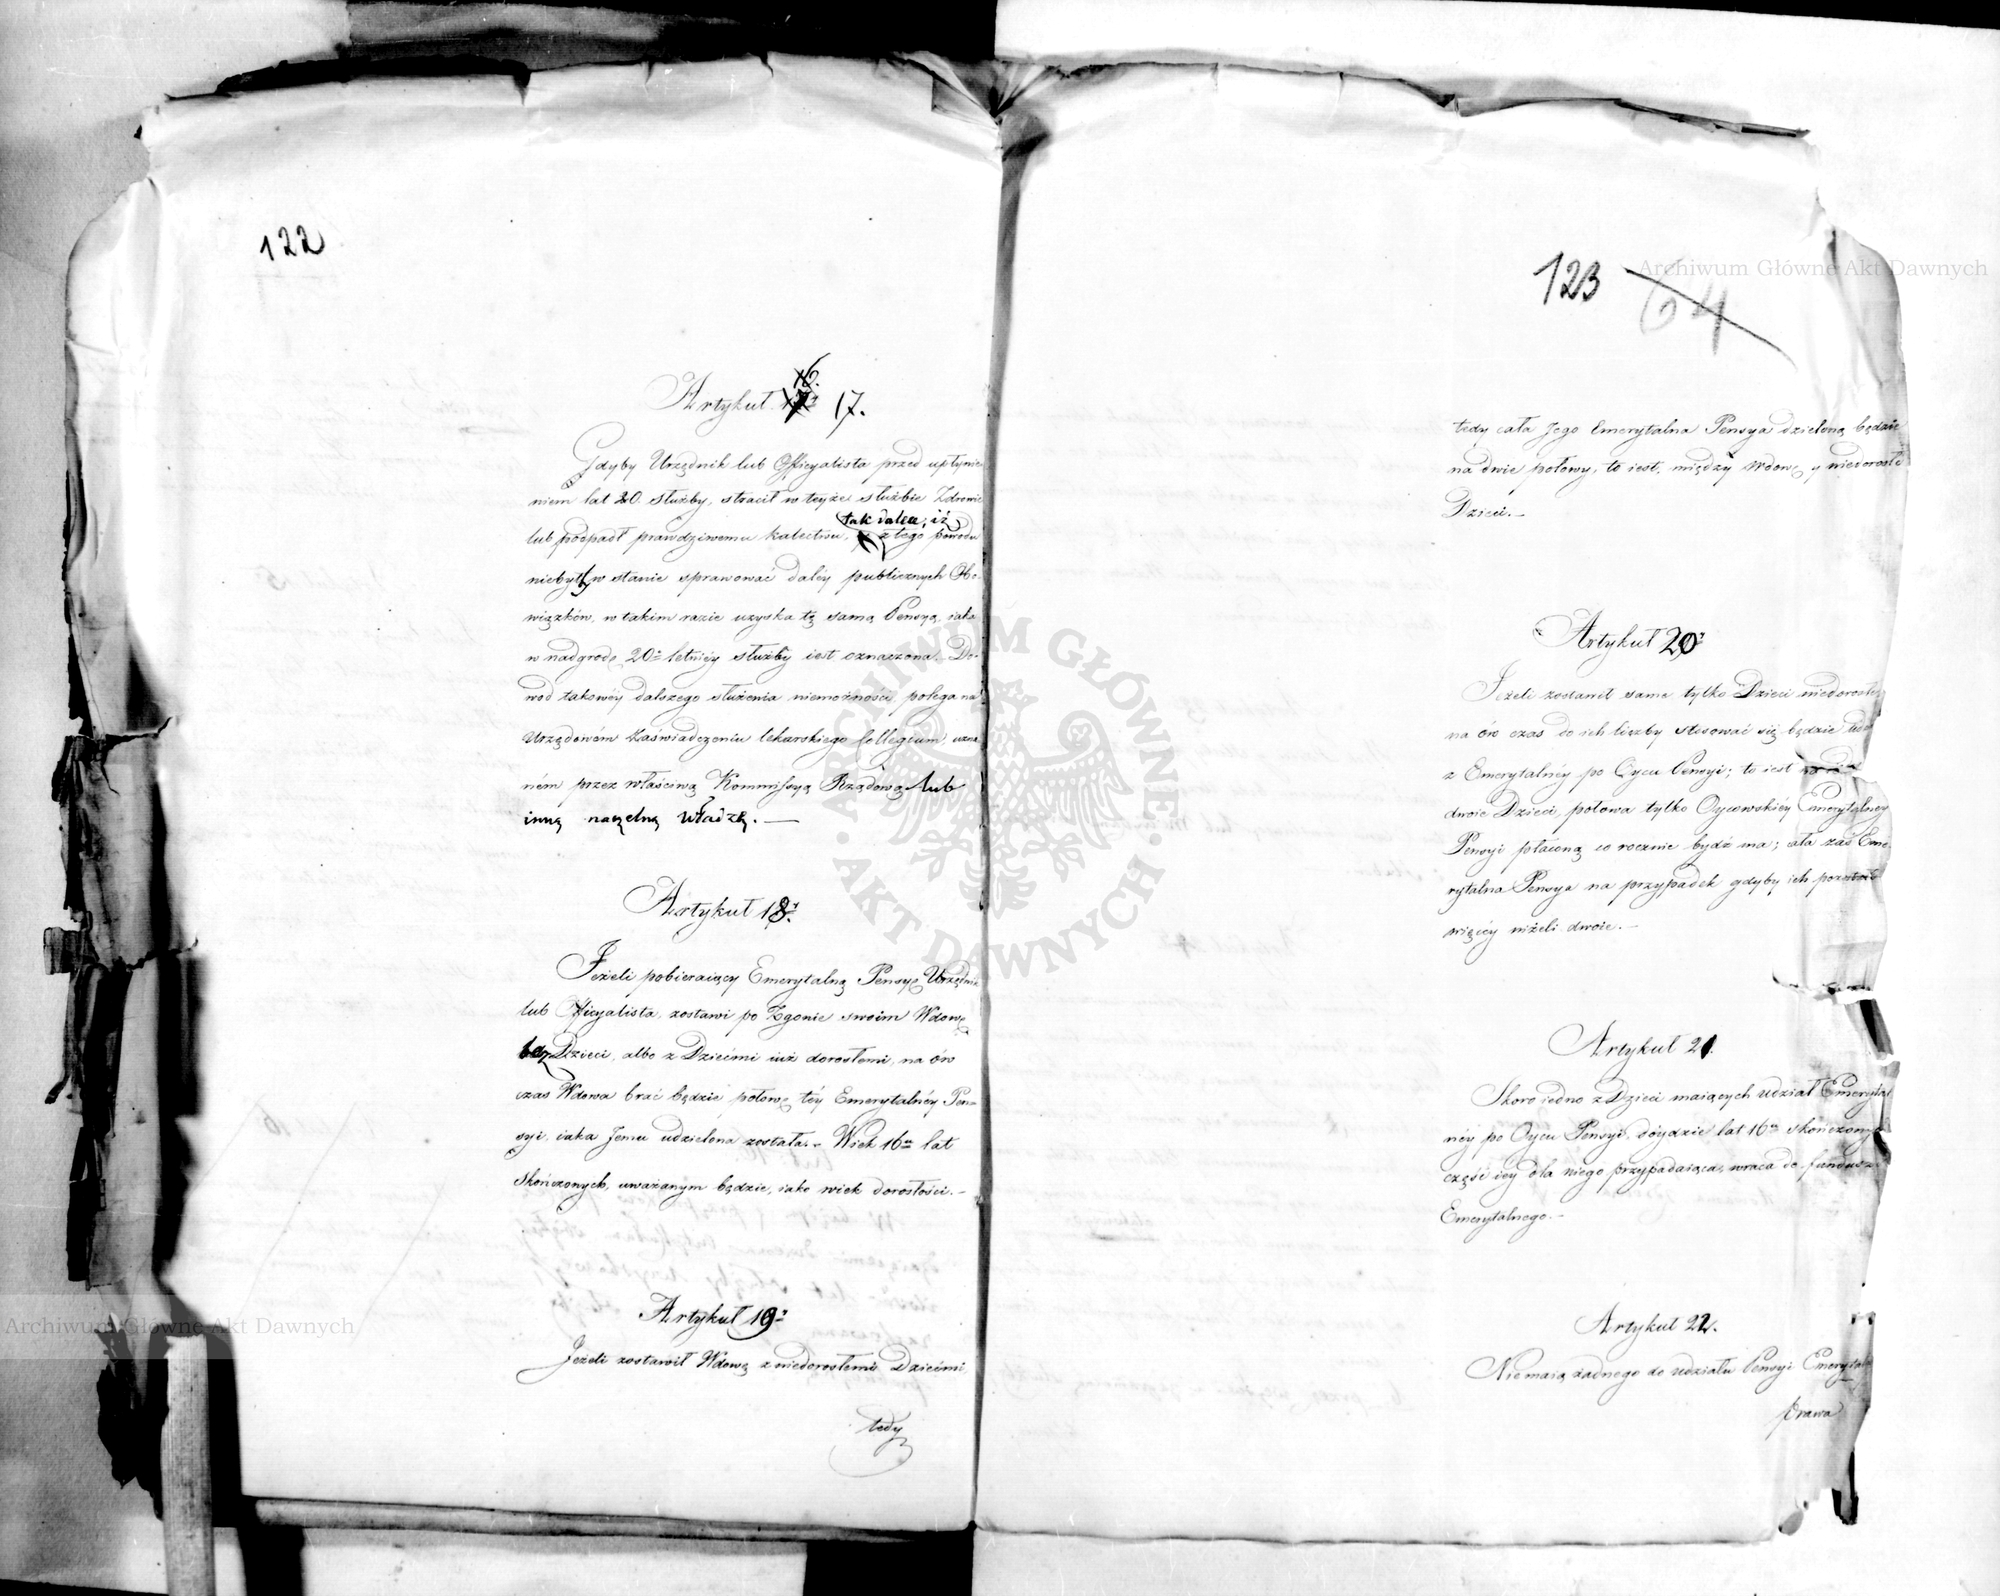 122
Artykuł 17.
Gdyby Urzędnik lub Officyalista przed upłynie
niem lat 20. służby, stracił w teyże służbie Zdrowie
tak dalece, iż
lub podpadł prawdziwemu kalectwu, z tego powodu
niebył w stanie sprawować daléy publicznych Obo-
wiązków, w takim razie uzyska tę samą Pensyą, iaka
w nadgrodę 20. letniéy służby iest oznaczona. Do-
wod takowéy dalszego służenia niemożności polega na
Urzędowém Zaświadczeniu lekarskiego Collegium, uzna
ném przez właściwą Kommissyą Rządową lub
inną naczelną Władzę. —
Artykuł 18.
Jeżeli pobieraiący Emerytalną Pensyę Urzędnik
lub Officyalista, zostawi po Zgonie swoim Wdowę
bez Dzieci, albo z Dziećmi iuż dorosłemi, na ów
czas Wdowa brać będzie połowę téy Emerytalnéy Pen-
syi, iaka Jemu udzielona została. – Wiek 16tu lat
skończonych, uważanym będzie, iako wiek dorosłości. –
Artykuł 19.
Jeżeli zostawił Wdowę z niedorosłemi Dziećmi,
tedy
Archiwum Główne Akt Dawnych
123 64
Archiwum Główne Akt Dawnych
tedy cała Jego Emerytalna Pensya dzieloną będzie
na dwie połowy, to iest, między Wdowę y niedorosłe
Dzieci. –
Artykuł 20.
Jeżeli zostawił same tylko Dzieci niedorosłe,
na ów czas do ich liczby stosować się będzie
z Emerytalnéy po Oycu Pensyi; to iest
dwoie Dzieci, połowa tylko Oycowskiéy Emerytalney
Pensyi płaconą co rocznie bydź ma; cała zaś Eme-
rytalna Pensya na przypadek gdyby ich pozostało
więcéy niżeli dwoie. –
Artykuł 21.
Skoro iedno z Dzieci maiących udział Emerytal
néy po Oycu Pensyi, dóydzie lat 16tu skończonych
część iéy dla niego przypadaiąca, wraca do funduszu
Emerytalnego. –
Artykuł 22.
Nie maią żadnego do udziału Pensyi Emerytal
prawa
ARCHIWUM GŁÓWNE · AKT DAWNYCH ·